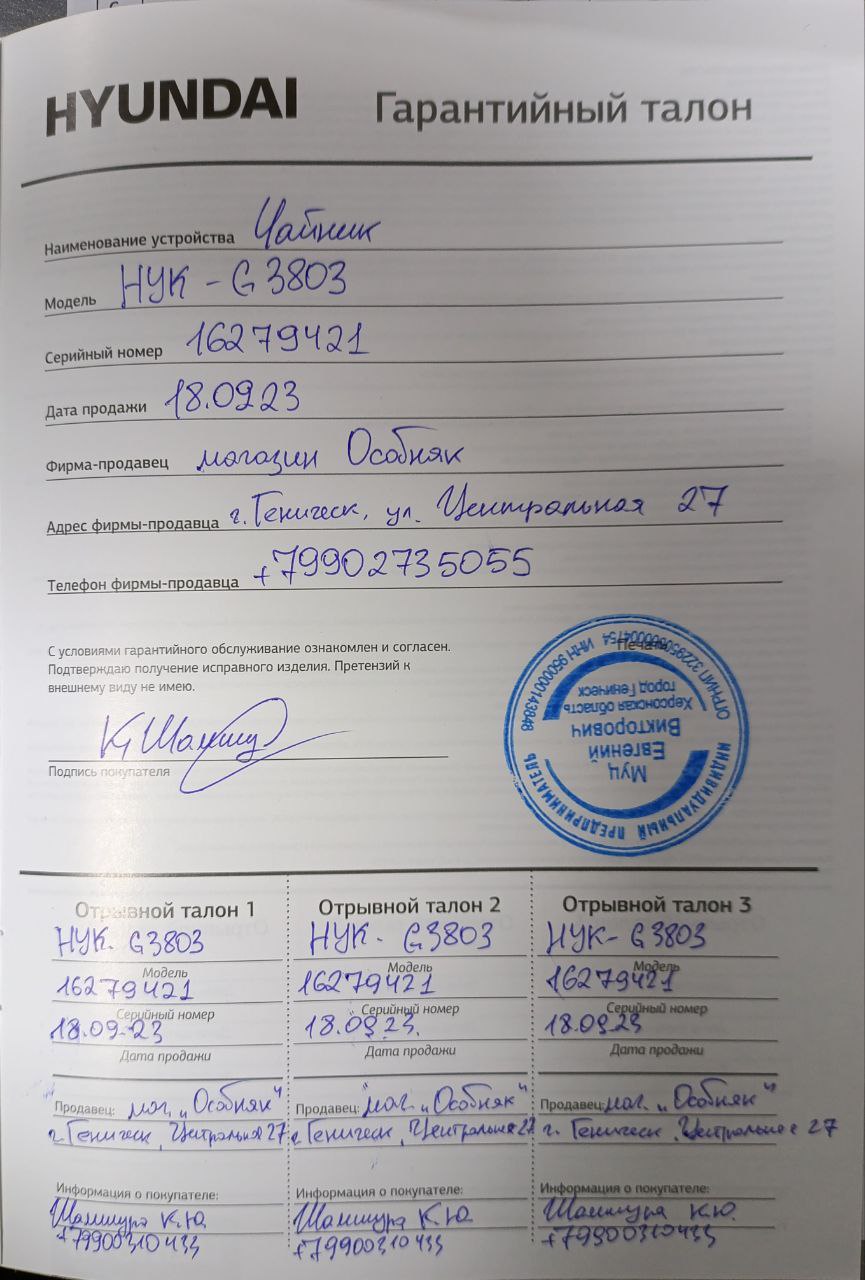 HYUNDAI Гарантийный талон
Наименование устройства Чайник
Модель HYK - G3803
Серийный номер 16279421
Дата продажи 18.09.23
Фирма-продавец магазин Особняк
Адрес фирмы-продавца г. Геническ, ул. Центральная 27
Телефон фирмы-продавца +79902735055
С условиями гарантийного обслуживание ознакомлен и согласен.
Подтверждаю получение исправного изделия. Претензий к
внешнему виду не имею.
Подпись покупателя
Печать
ИНДИВИДУАЛЬНЫЙ ПРЕДПРИНИМАТЕЛЬ
Муц
Евгений
Викторович
Херсонская область
город Геническ
ИНН 950000143848
Отрывной талон 1 Отрывной талон 2 Отрывной талон 3
HYK- G3803 HYK- G3803 HYK- G3803
Модель Модель Модель
16279421 16279421 16279421
Серийный номер Серийный номер Серийный номер
18.09.23 18.09.23. 18.09.23
Дата продажи Дата продажи Дата продажи
Продавец: маг. „Особняк" Продавец: маг. „Особняк" Продавец: маг. „Особняк"
г. Геническ, Центральная 27 г. Геническ, Центральная 27 г. Геническ, Центральная 27
Информация о покупателе: Информация о покупателе: Информация о покупателе:
К.Ю. К.Ю. К.Ю.
+79900310433 +79900310433 +79900310433